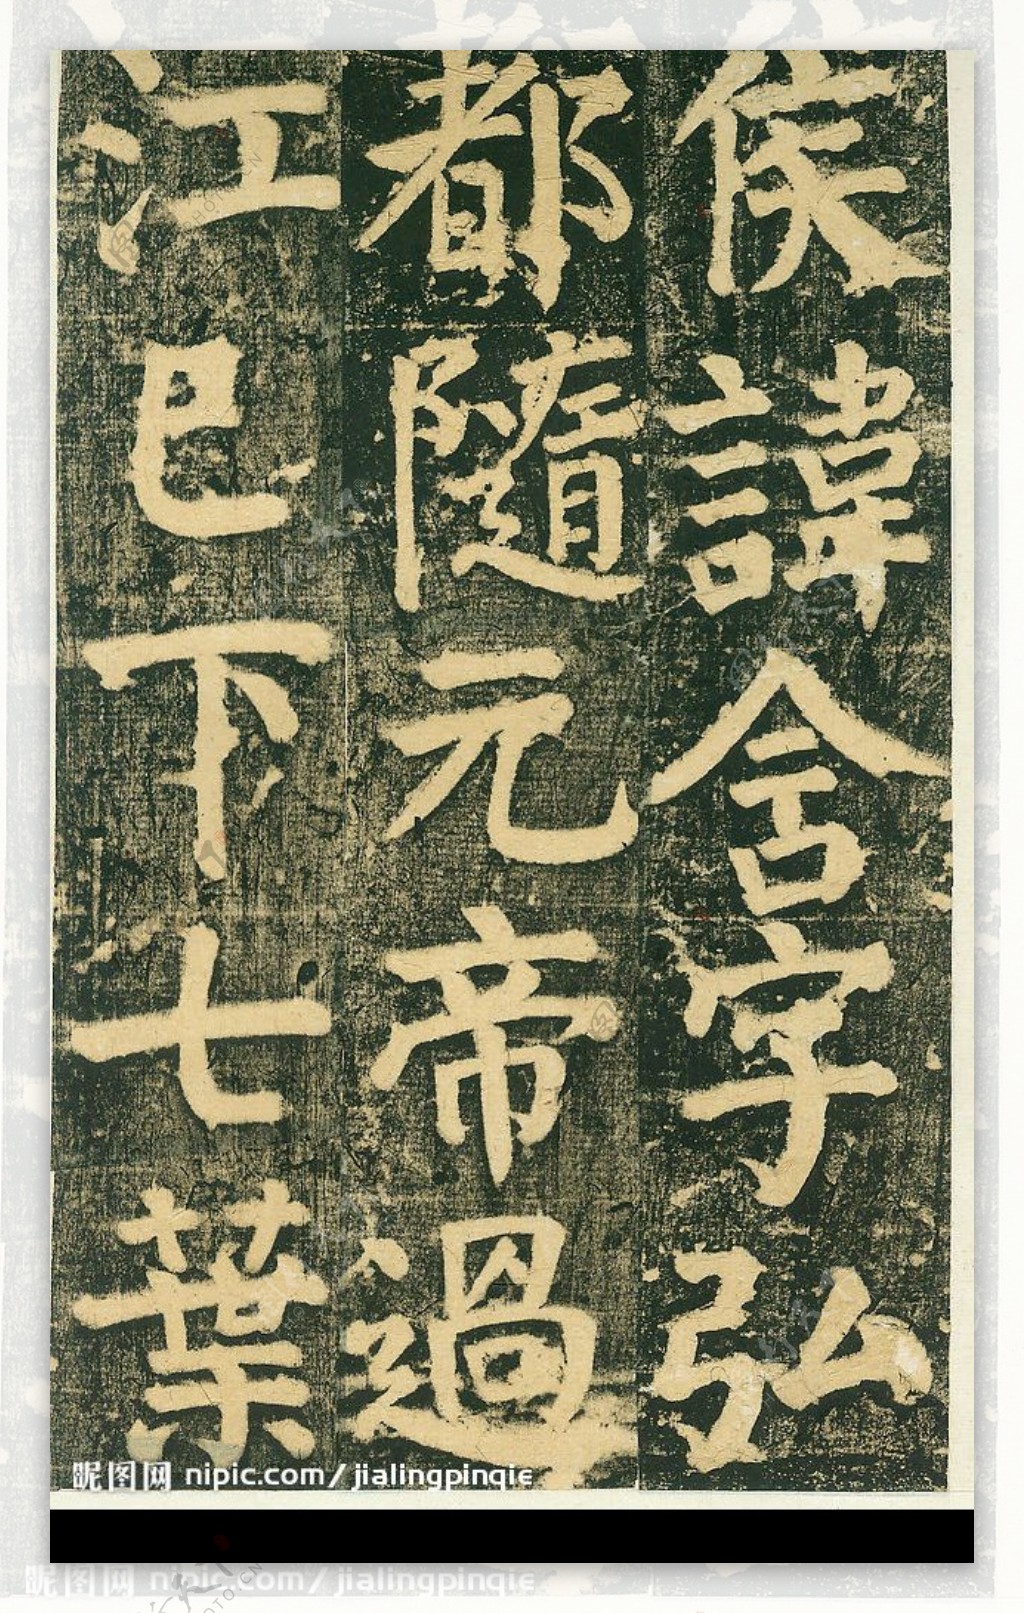 侯諱含字弘
都隨元帝過
江已下七葉
昵图网 nipic.com/jialingpinqie
昵图网 nipic.com/jialingpinqie